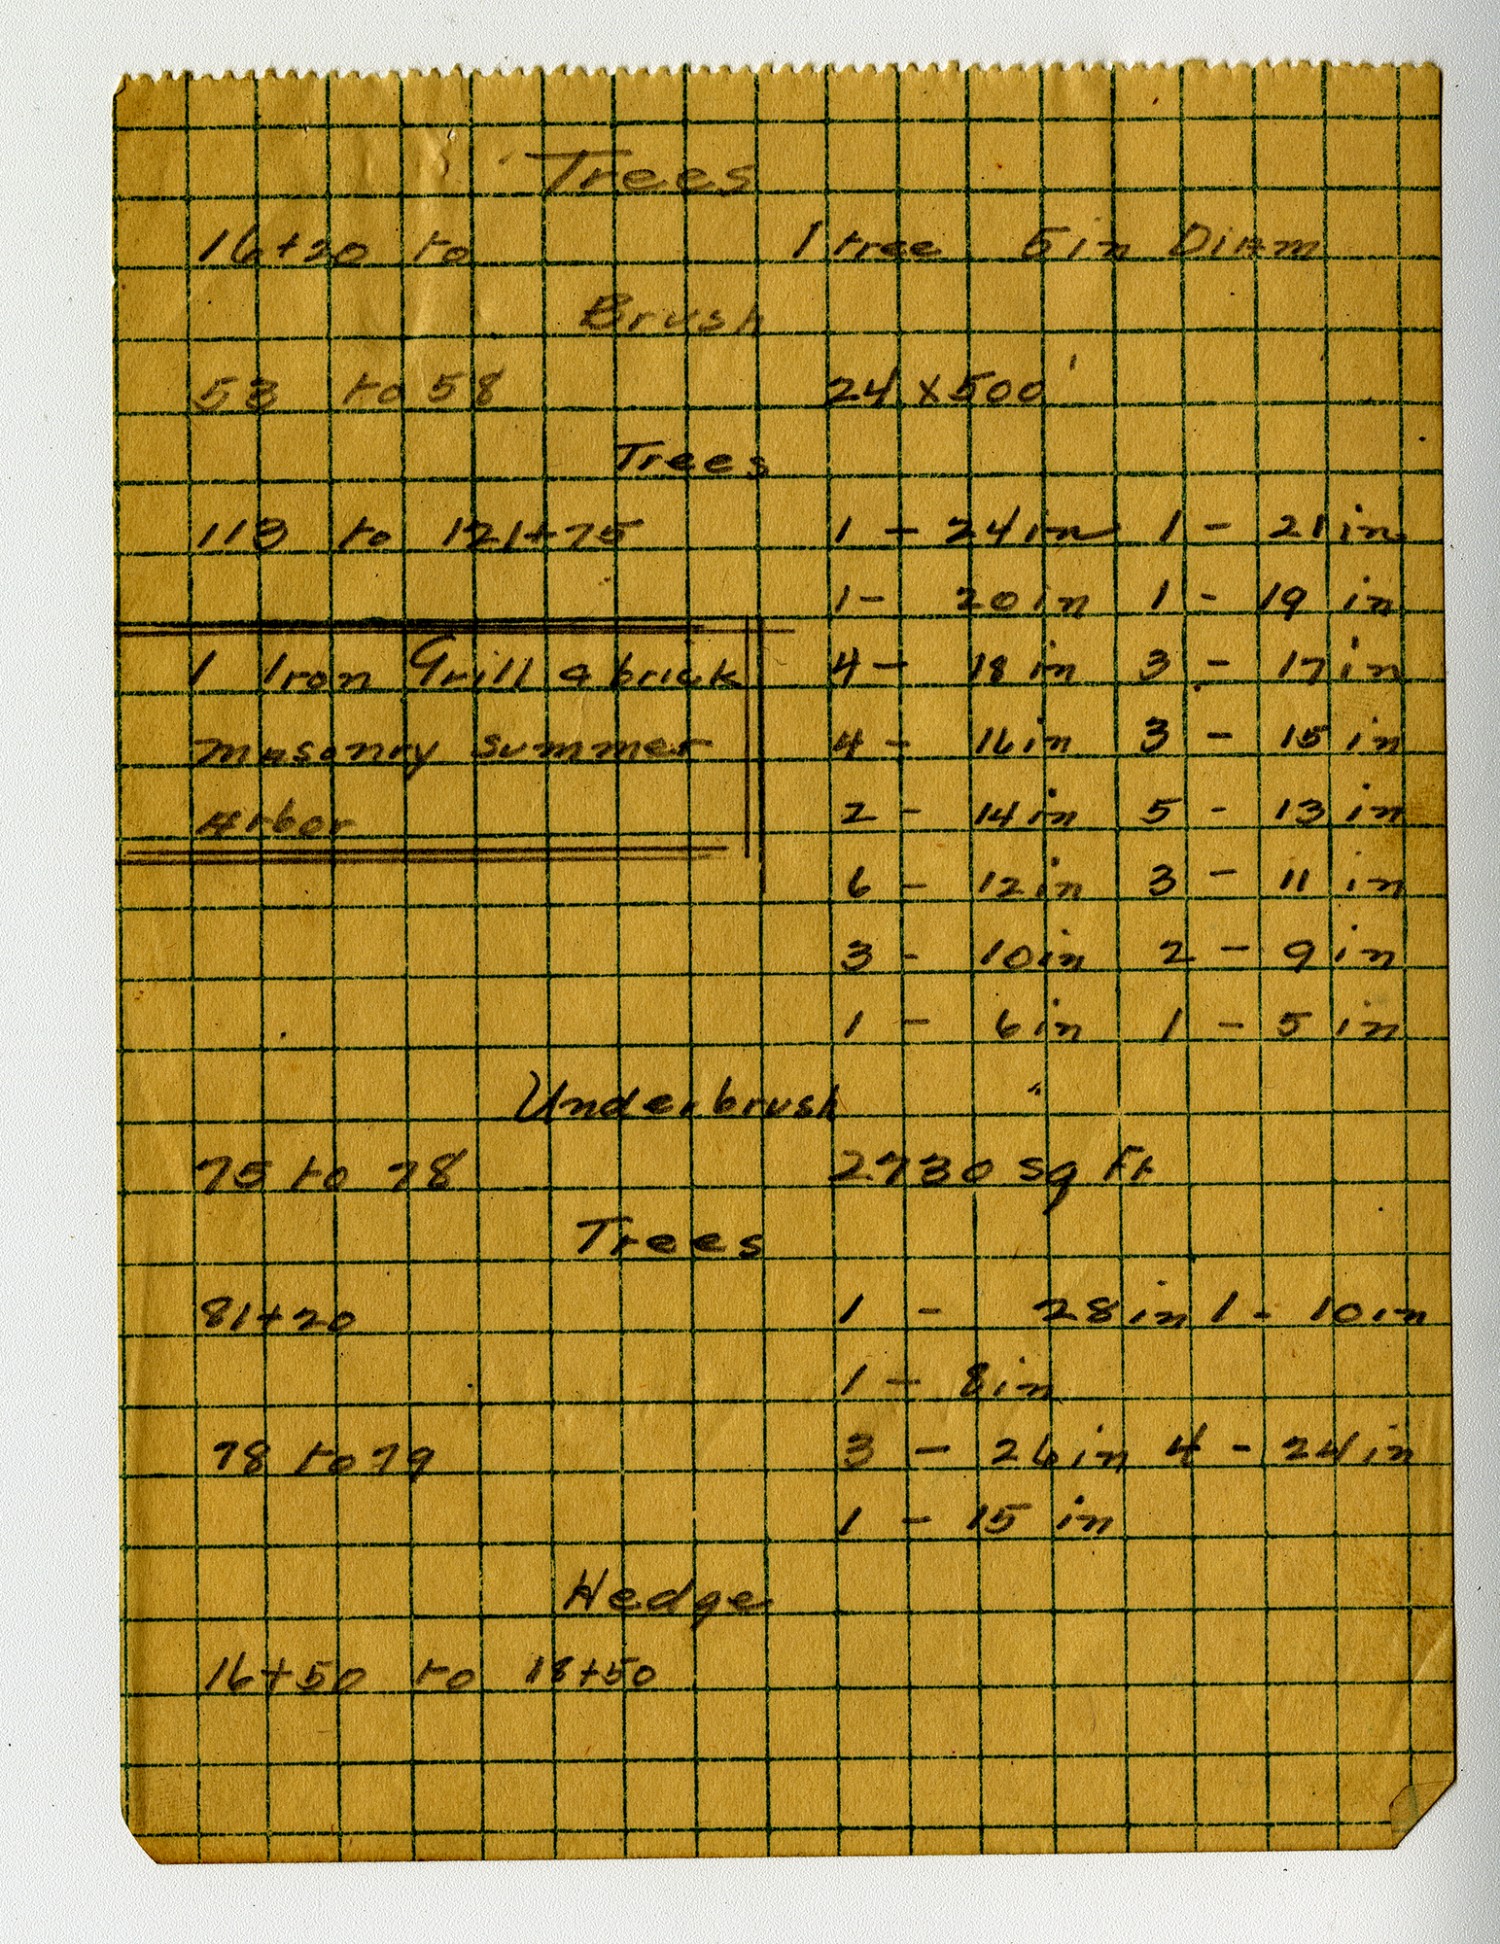 Trees
16+20 to 1 tree 5 in Diam
Brush
53 to 58 24 x 500'
Trees
113 to 121+75 1 - 24 in 1 - 21 in
1 - 20 in 1 - 19 in
1 Iron Grill & brick 4 - 18 in 3 - 17 in
masonry summer 4 - 16 in 3 - 15 in
Arbor 2 - 14 in 5 - 13 in
6 - 12 in 3 - 11 in
3 - 10 in 2 - 9 in
1 - 6 in 1 - 5 in
Underbrush
75 to 78 2730 sq Ft
Trees
81+20 1 - 28 in 1 - 10 in
1 - 8 in
78 to 79 3 - 26 in 4 - 24 in
1 - 15 in
Hedge
16+50 to 18+50